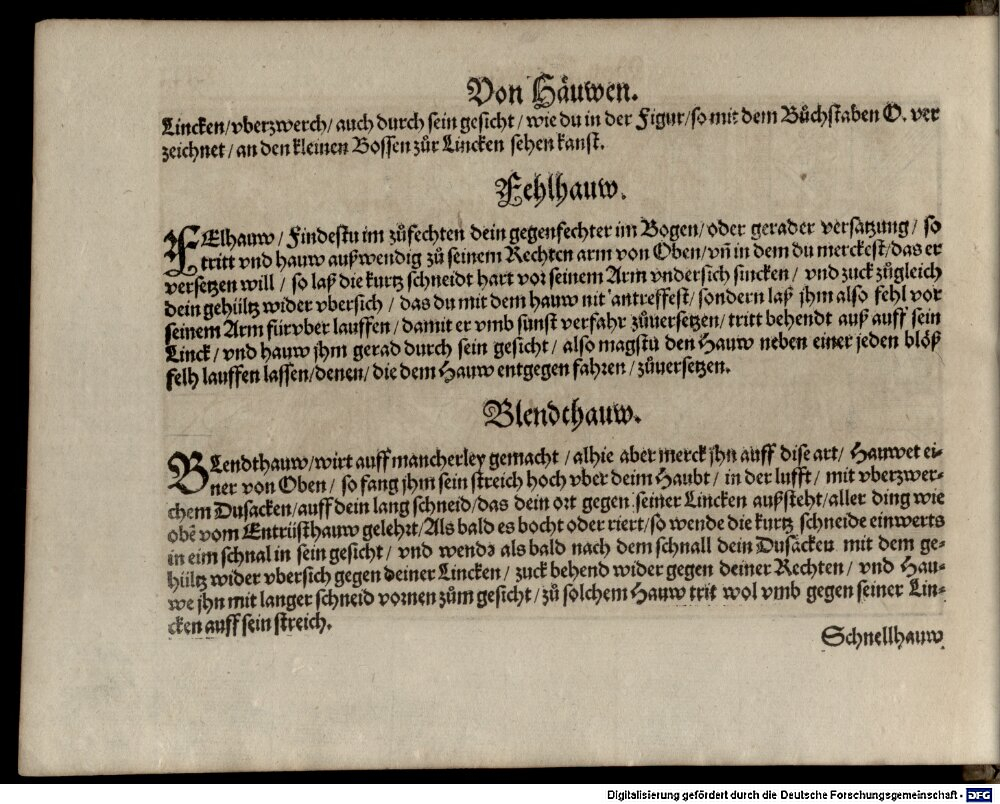 Von Häuwen.
Lincken/ vberzwerch/ auch durch sein gesicht/ wie du in der Figur/ so mit dem Bůchstaben O. ver
zeichnet/ an den kleinen Bossen zůr Lincken sehen kanst.
Fehlhauw.
FElhauw/ Findestu im zůfechten dein gegenfechter im Bogen/ oder gerader versatzung/ so
tritt vnd hauw außwendig zů seinem Rechten arm von Oben/ vñ in dem du merckest/ das er
versetzen will/ so laß die kurtz schneidt hart vor seinem Arm vndersich sincken/ vnd zuck zůgleich
dein gehültz wider vbersich/ das du mit dem hauw nit antreffest/ sondern laß jhm also fehl vor
seinem Arm fürvber lauffen/ damit er vmb sunst verfahr zůuersetzen/ tritt behendt auß auff sein
Linck/ vnd hauw jhm gerad durch sein gesicht/ also magstu den Hauw neben einer jeden blöß
felh lauffen lassen/ denen/ die dem Hauw entgegen fahren/ zůuersetzen.
Blendthauw.
BLendthauw/ wirt auff mancherley gemacht/ alhie aber merck jhn auff dise art/ Hauwet ei-
ner von Oben/ so fang jhm sein streich hoch vber deim Haubt/ in der lufft/ mit vberzwer-
chem Dusacken/ auff dein lang schneid/ das dein ort gegen seiner Lincken außsteht/ aller ding wie
obẽ vom Entrüsthauw gelehrt/ Als bald es bocht oder riert/ so wende die kurtz schneide einwerts
in eim schnal in sein gesicht/ vnd wende als bald nach dem schnall dein Dusäcken mit dem ge-
hültz wider vbersich gegen deiner Lincken/ zuck behend wider gegen deiner Rechten/ vnd Hau-
we jhn mit langer schneid vornen zům gesicht/ zů solchem Hauw trit wol vmb gegen seiner Lin-
cken auff sein streich.
Schnellhauw
Digitalisierung gefördert durch die Deutsche Forschungsgemeinschaft - DFG